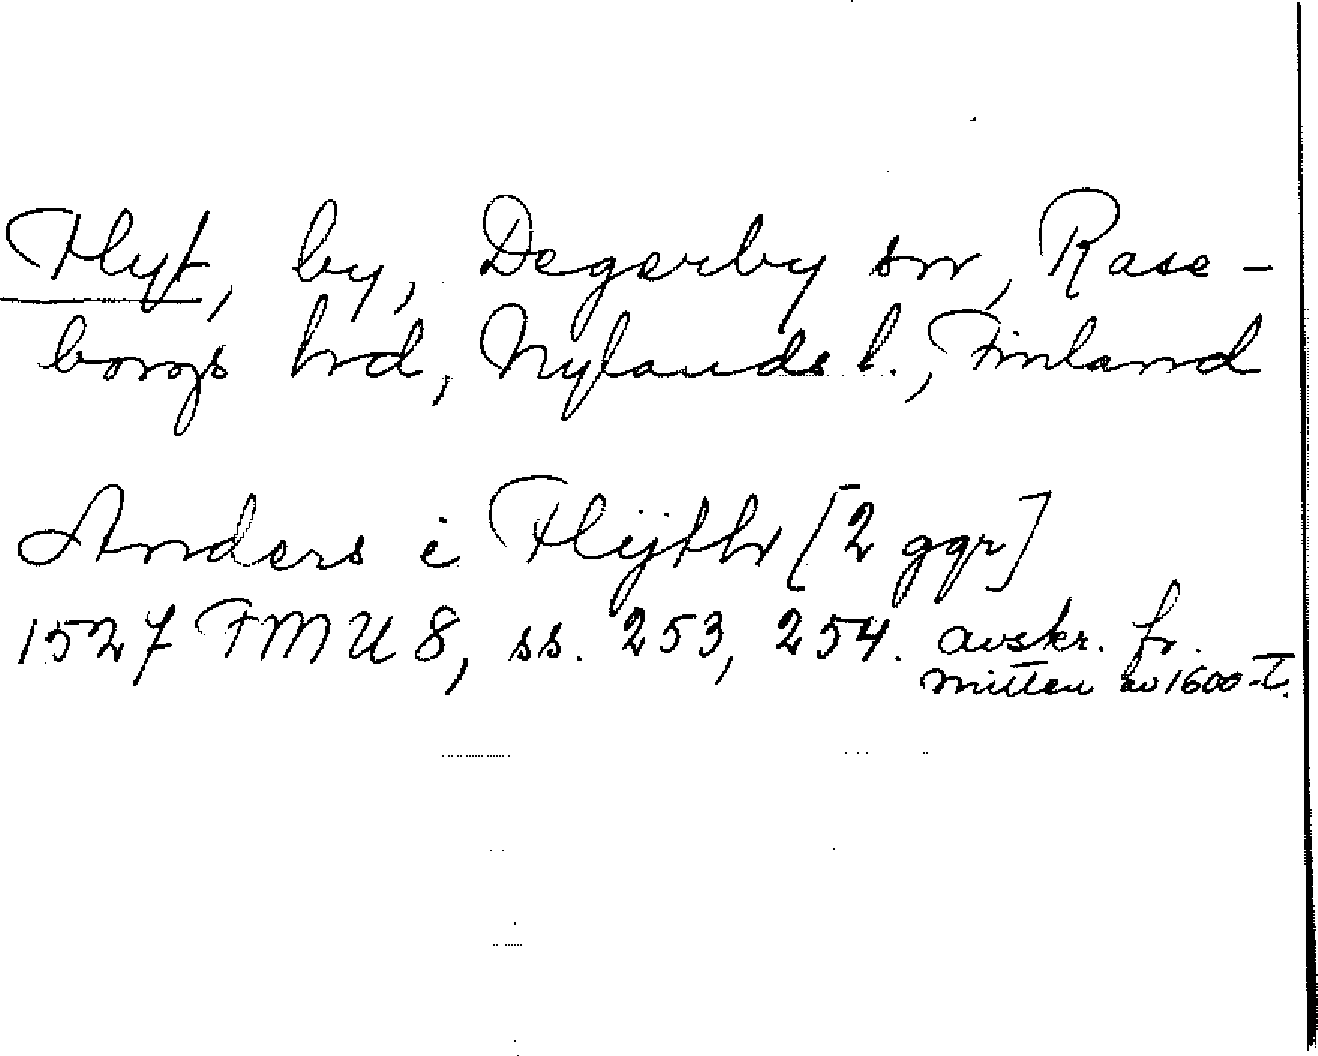 Flyt, by, Degerby sn, Rase-
borgs hrd, Nylands l., Finland
Anders i Flÿthr [2 ggr]
1527 FMU 8, ss. 253, 254. avskr. fr.
mitten av 1600-t.